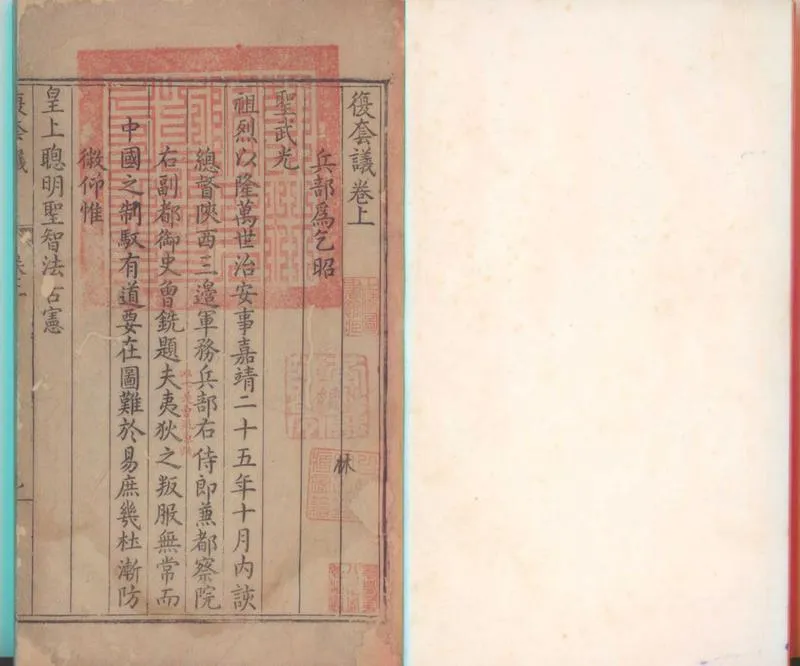 復套議卷上
兵部爲乞昭
聖武光
祖烈以隆萬世治安事嘉靖二十五年十月內談
總督陝西三邊軍務兵部右侍郎兼都察院
右副都御史曾銑題夫夷狄之叛服無常而
中國之制馭有道要在圖難於易庶幾杜漸防
微仰惟
皇上聰明聖智法古憲
復套議
林